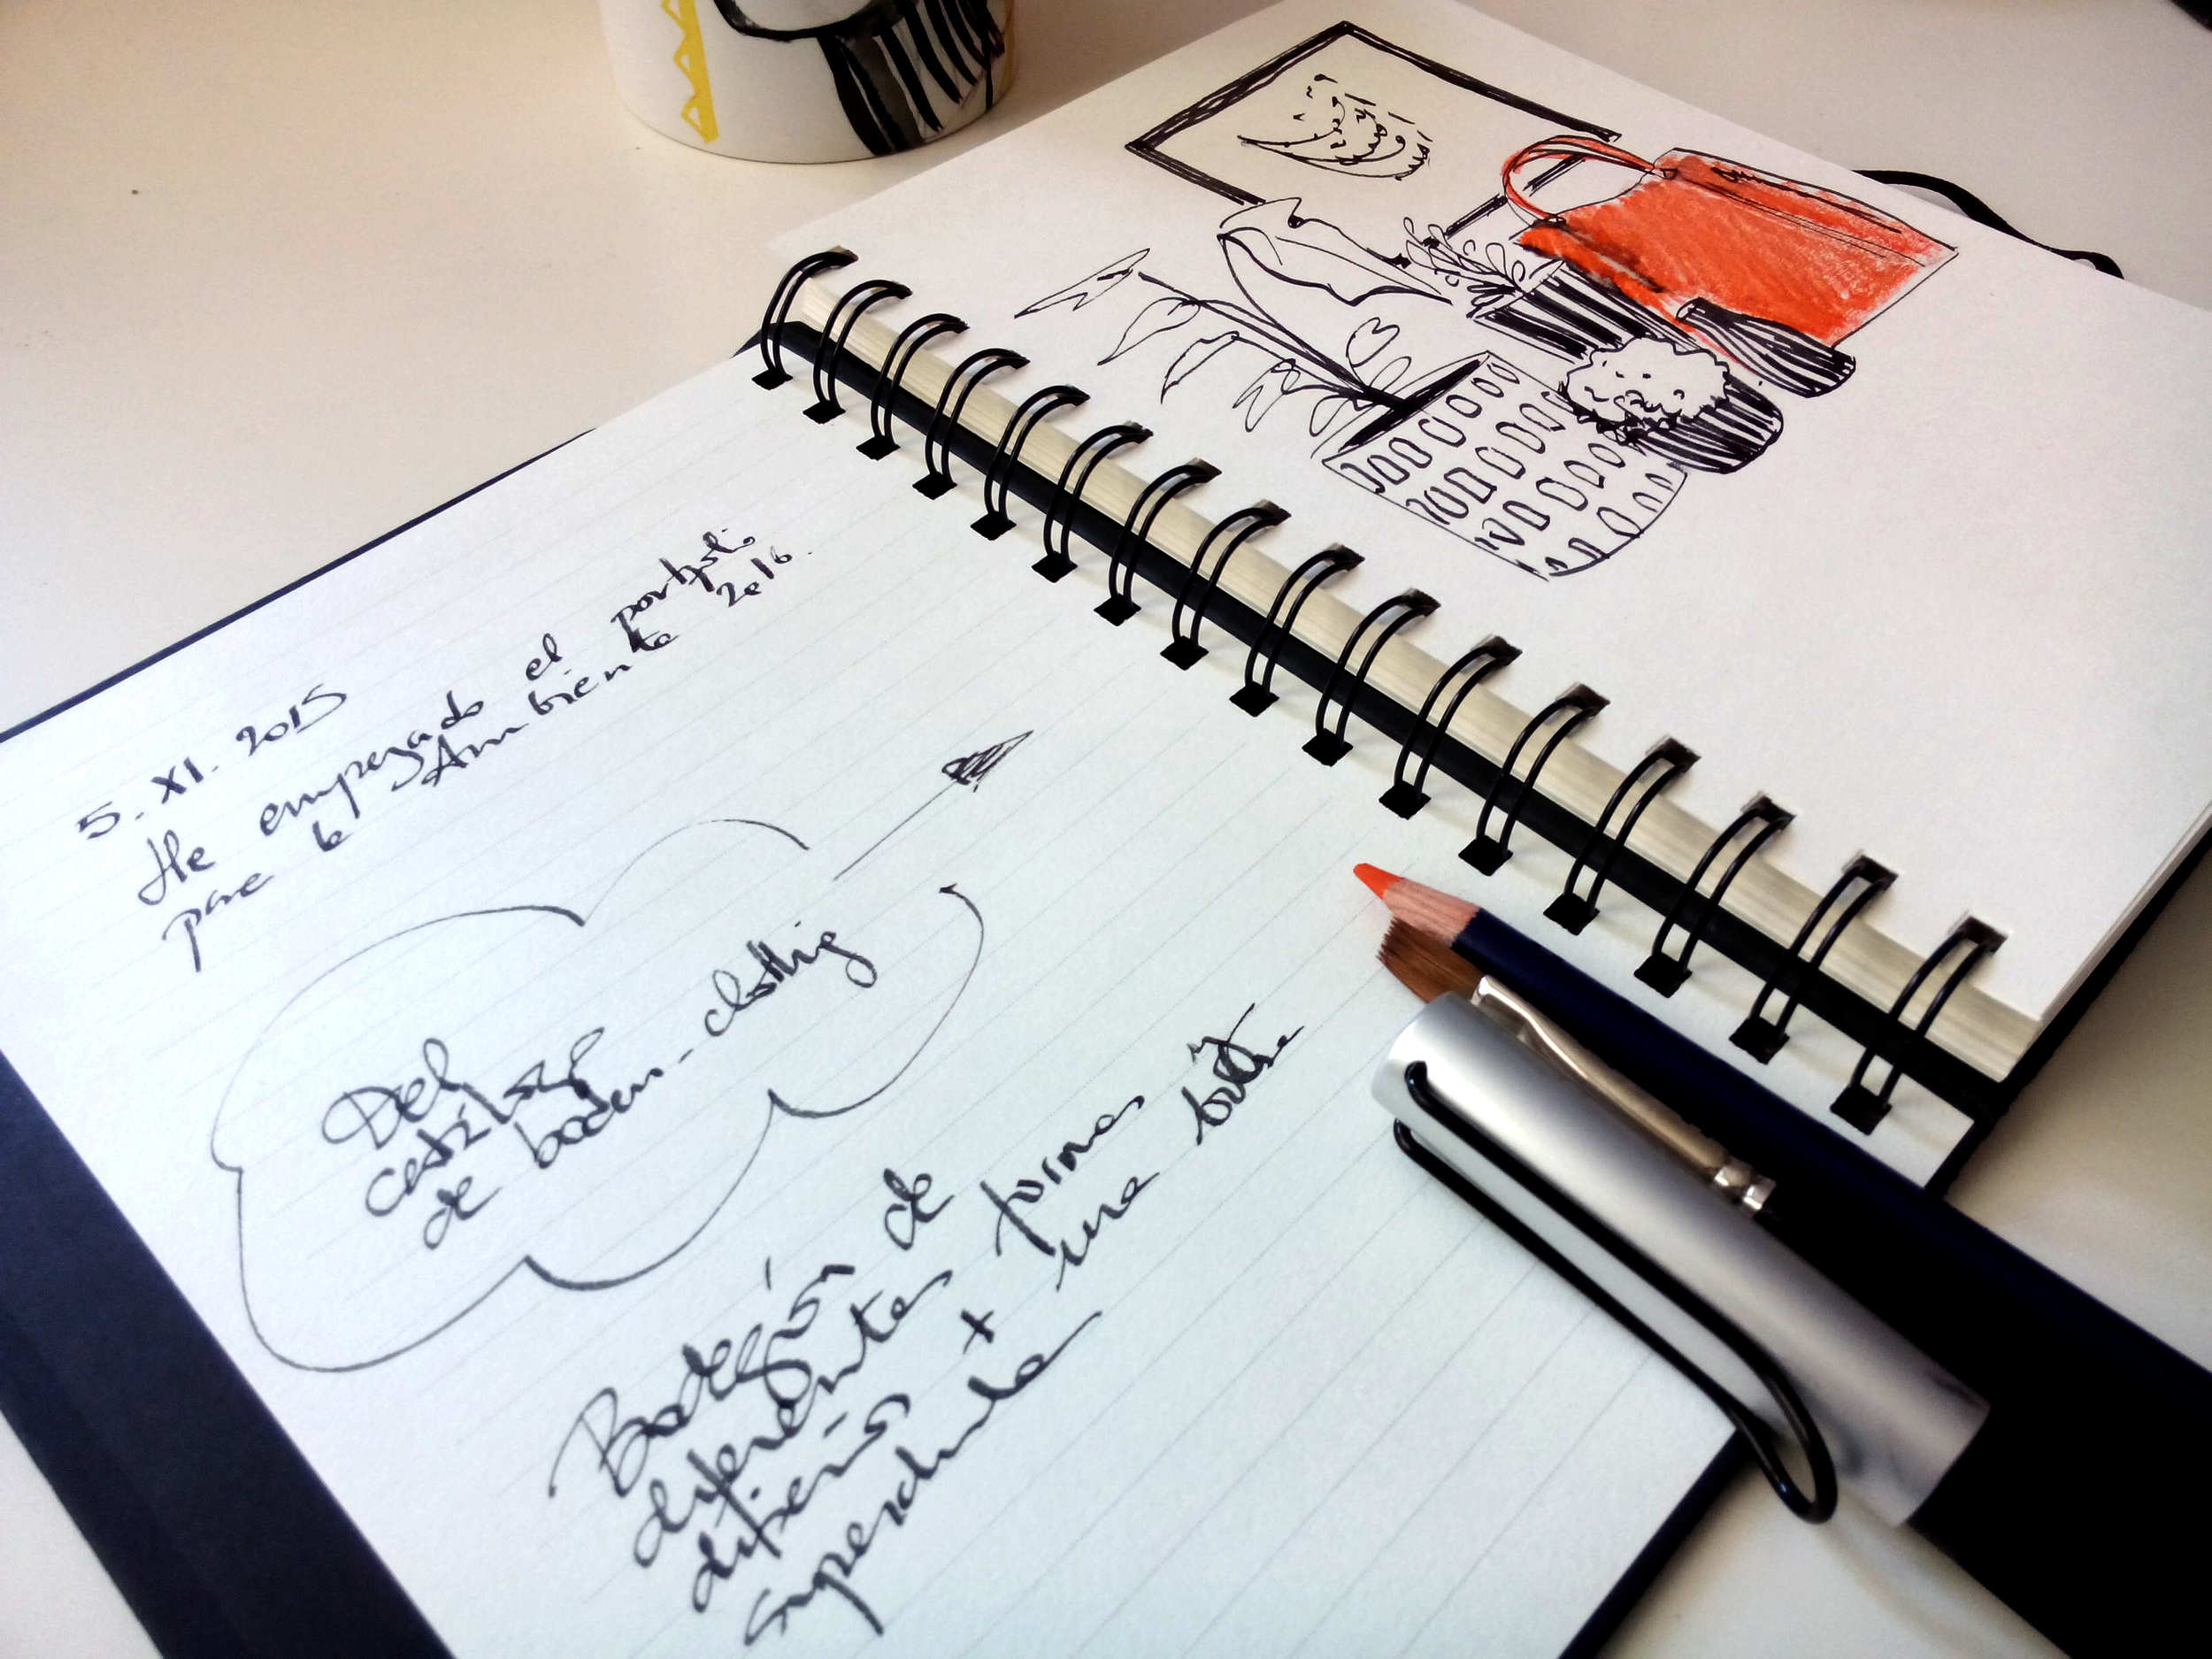 5. XI. 2015
He empezado el portfolio
para la Ambiente 2016.
Del
catálogo
de boden-clothing
Bodegón de
diferentes formas y
diseños + una botella
superchula